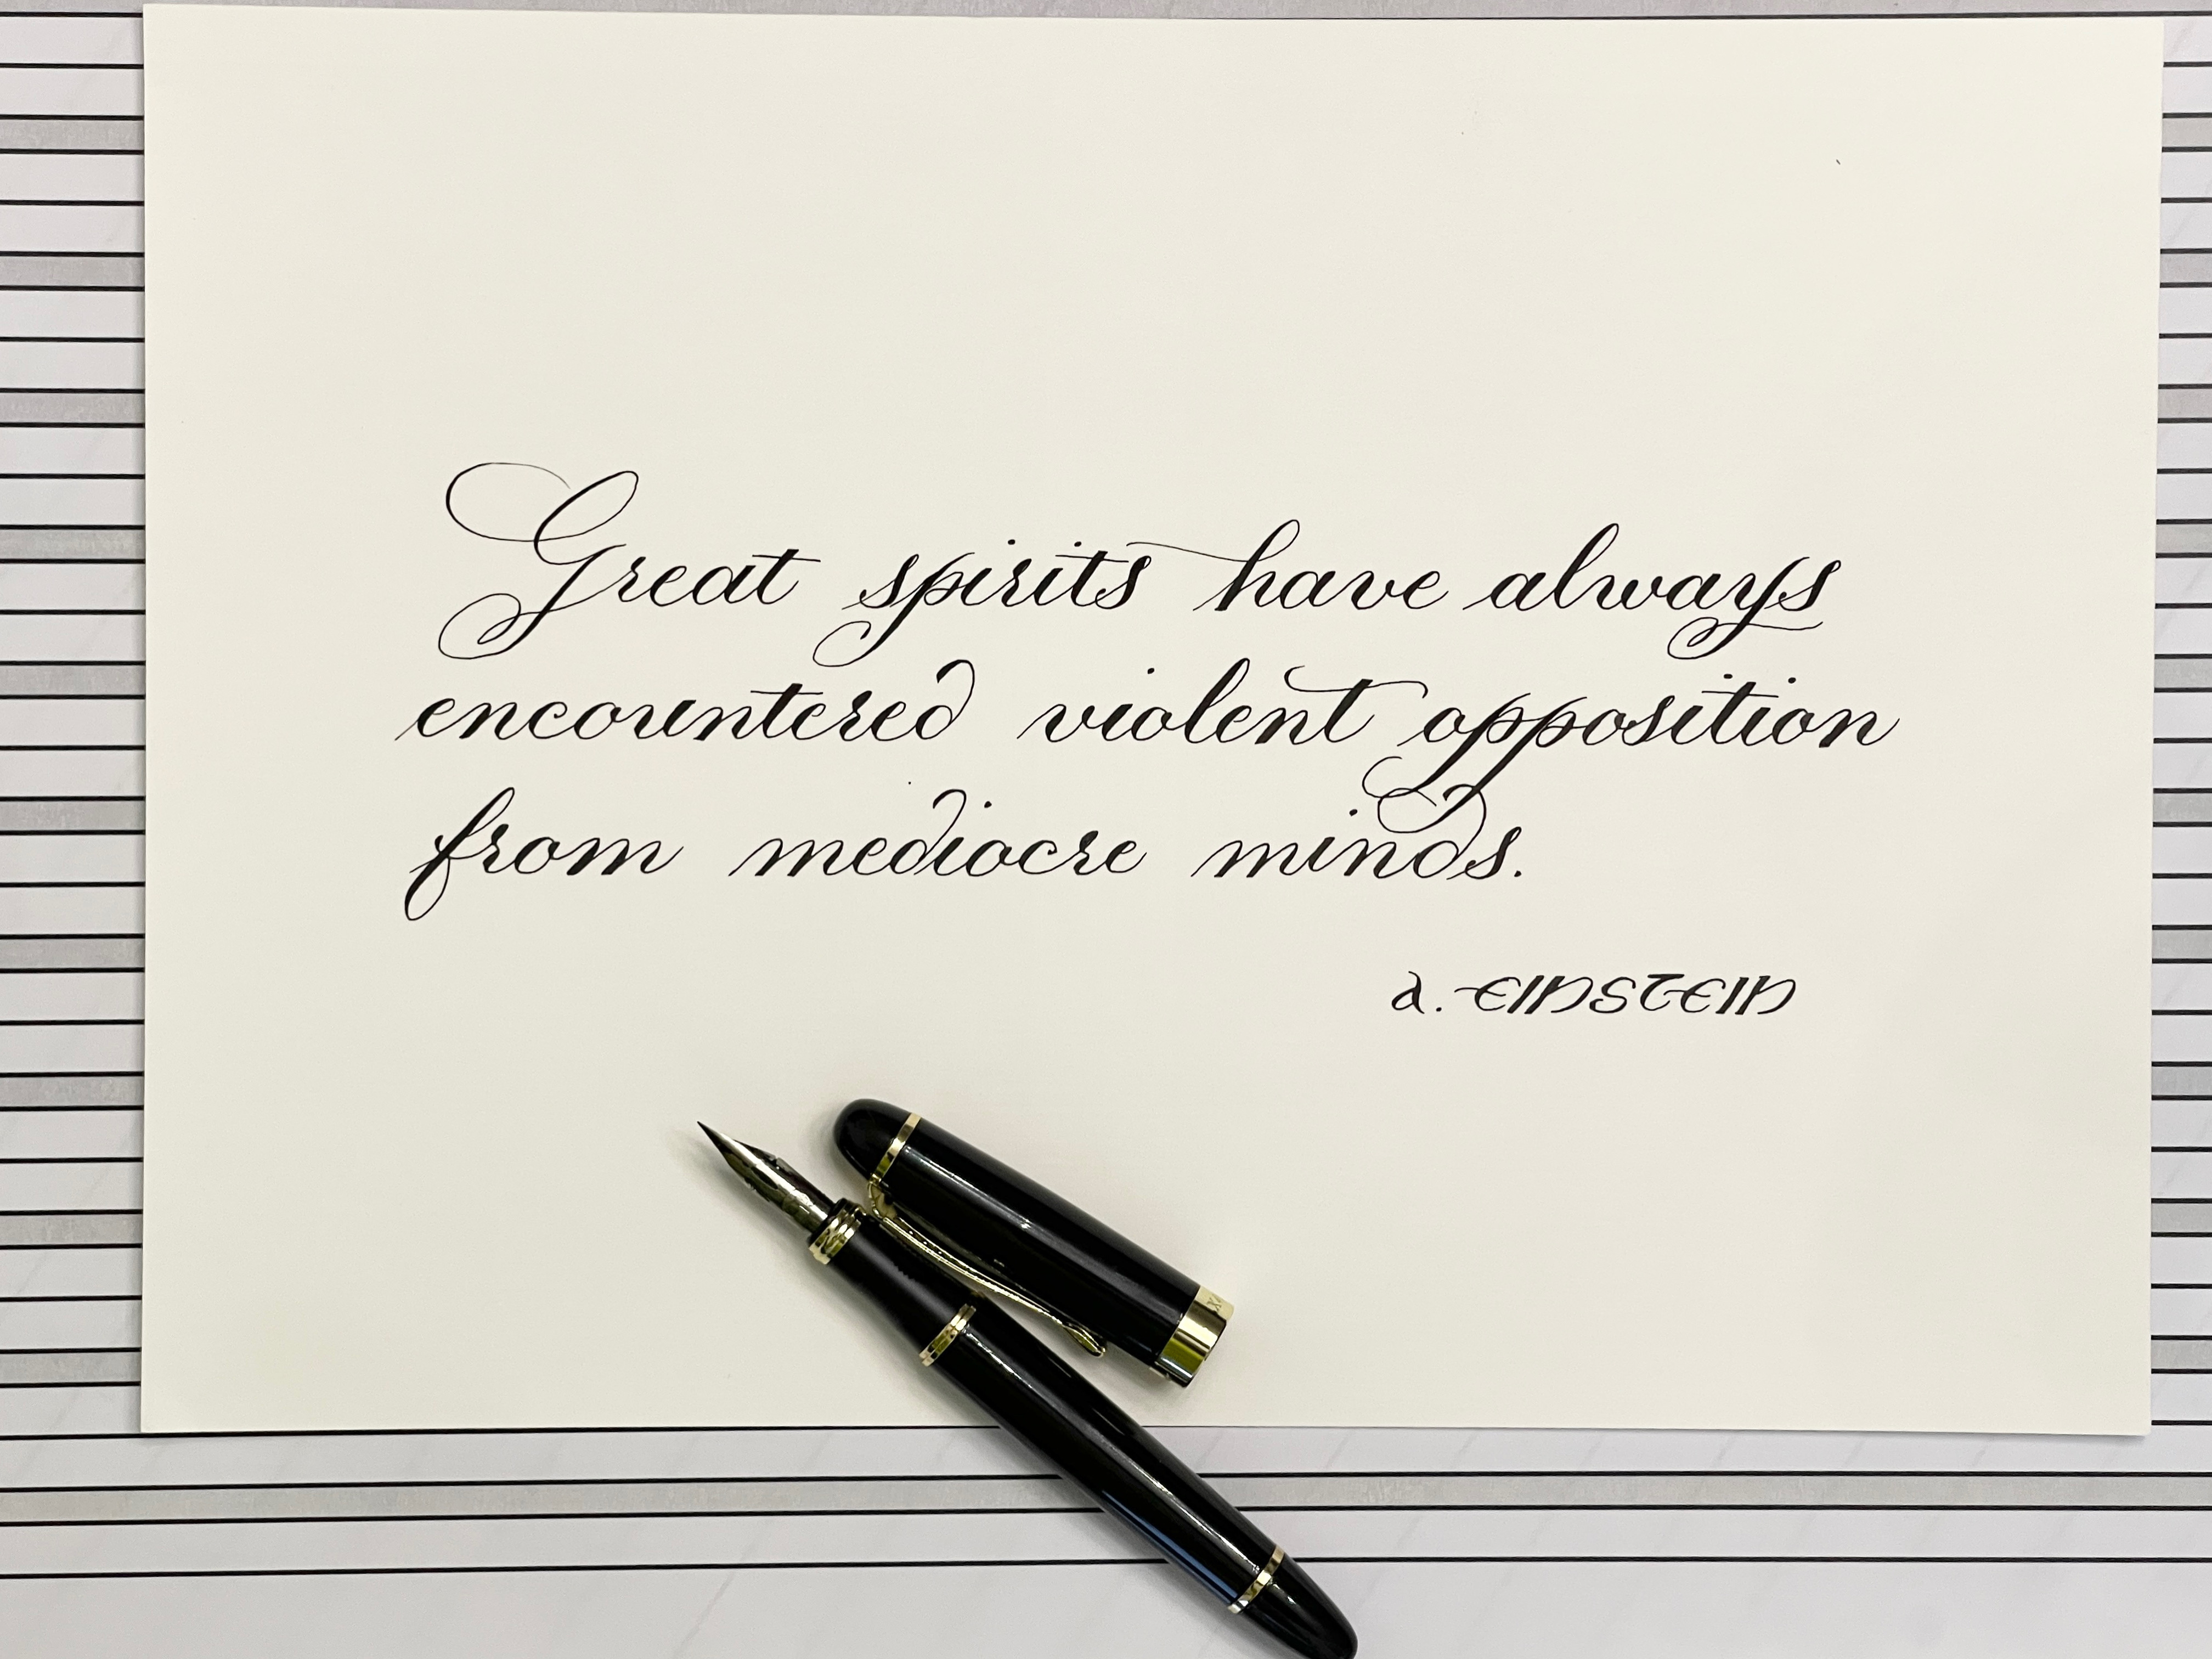 Great spirits have always
encountered violent opposition
from mediocre minds.
a. EINSTEIN